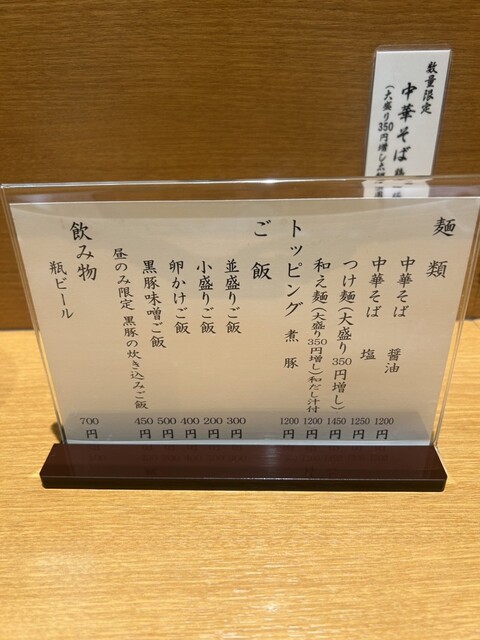 数量限定
中華そば
(大盛り350円増し
麺類
中華そば 醤油 1200円
中華そば 塩 1250円
つけ麺(大盛り350円増し) 1450円
和え麺(大盛り350円増し)和だし汁付 1200円
トッピング 煮豚 1200円
ご飯
並盛りご飯 300円
小盛りご飯 200円
卵かけご飯 400円
黒豚味噌ご飯 500円
昼のみ限定 黒豚の炊き込みご飯 450円
飲み物
瓶ビール 700円